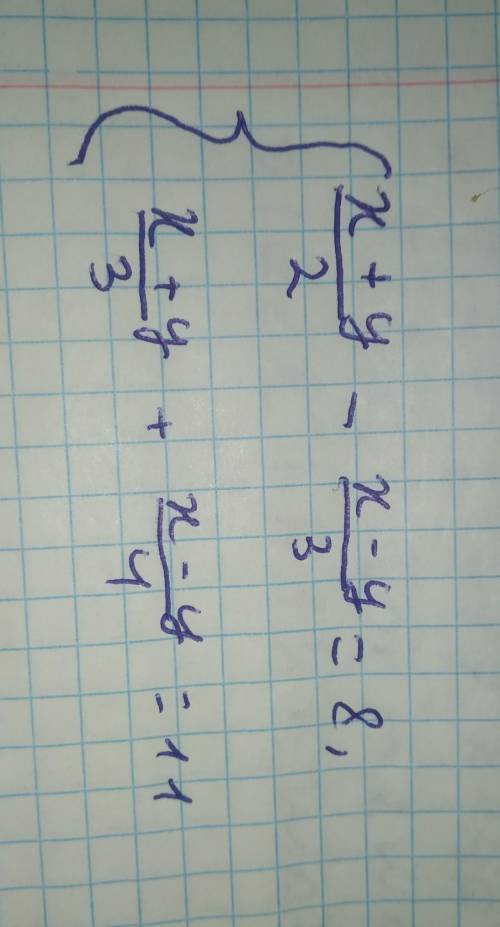 { (x + y)/2 - (x - y)/3 = 8,
(x + y)/3 + (x - y)/4 = 11